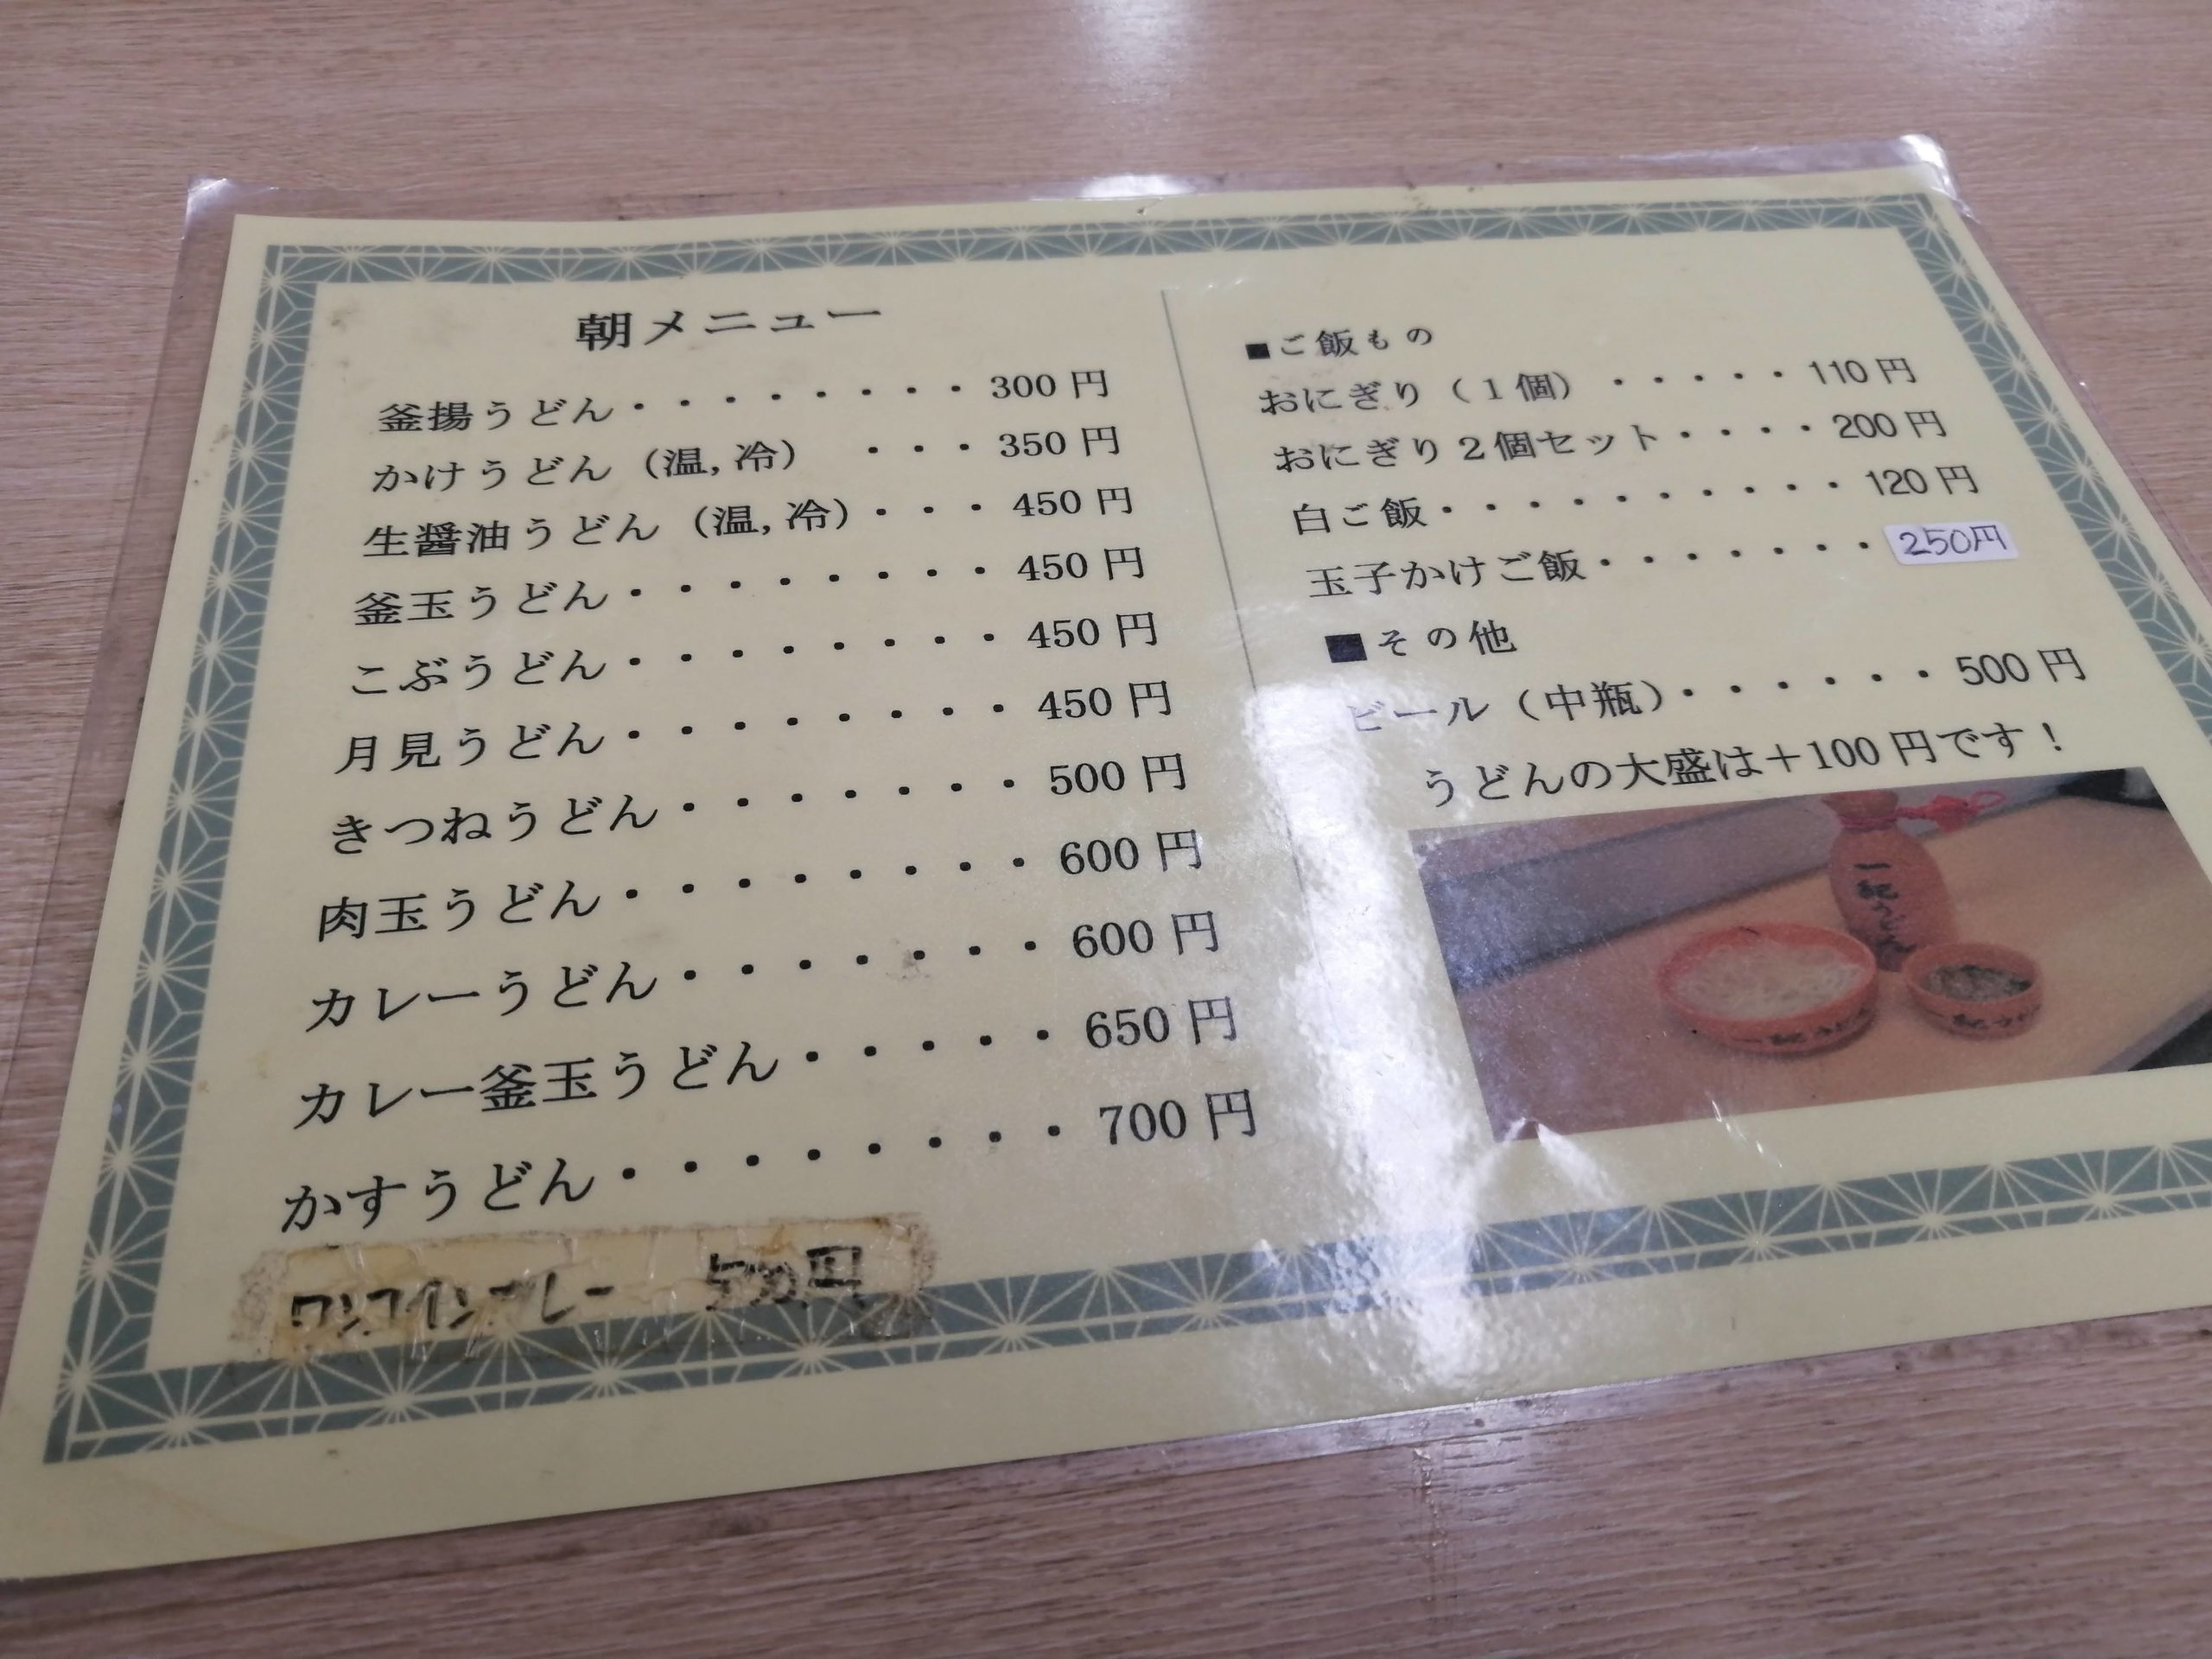 朝メニュー
釜揚うどん・・・・・・・・300円
かけうどん（温,冷）　・・・350円
生醤油うどん（温,冷）・・・450円
釜玉うどん・・・・・・・・450円
こぶうどん・・・・・・・・450円
月見うどん・・・・・・・・450円
きつねうどん・・・・・・・500円
肉玉うどん・・・・・・・・600円
カレーうどん・・・・・・・600円
カレー釜玉うどん・・・・・650円
かすうどん・・・・・・・・700円
ワンコインカレー　500円
■ご飯もの
おにぎり（１個）・・・・・110円
おにぎり２個セット・・・・200円
白ご飯・・・・・・・・・・120円
玉子かけご飯・・・・・・・250円
■その他
ビール（中瓶）・・・・・・500円
うどんの大盛は＋100円です！
一紀うどん
一紀うどん
一紀うどん